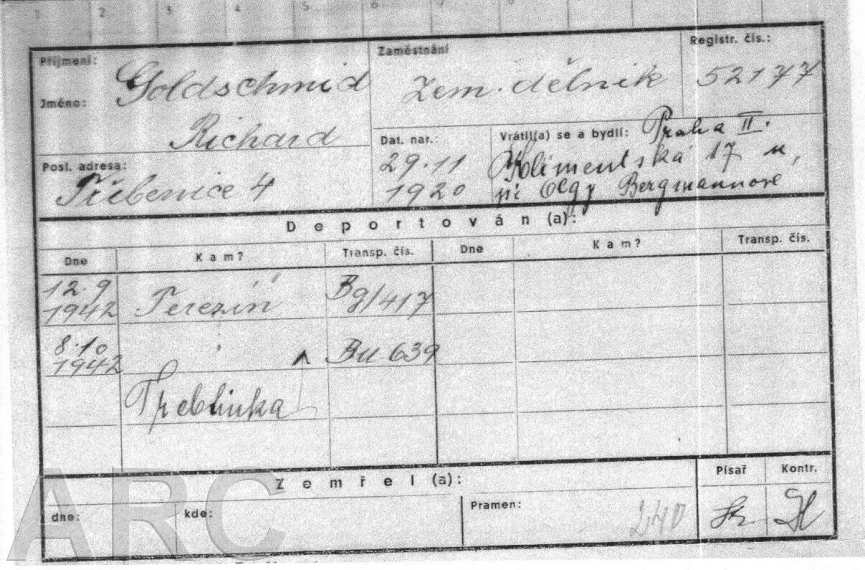 1 2 3 4 5 6 7
Příjmení: Goldschmid
Zaměstnání
Zem. dělník
Registr. čís.:
52177
Jméno: Richard
Posl. adresa:
Třebenice 4
Dat. nar.:
29.11
1920
Vrátil(a) se a bydlí: Praha II.
Klimentská 17 u,
pí Olgy Bergmannové
Deportován (a):
Dne Kam? Transp. čís. Dne Kam? Transp. čís.
12.9
1942 Terezín Bg/417
8.10
1942 Bu 639
Treblinka
Zemřel (a):
Písař Kontr.
dne: kde: Pramen:
240
ARC